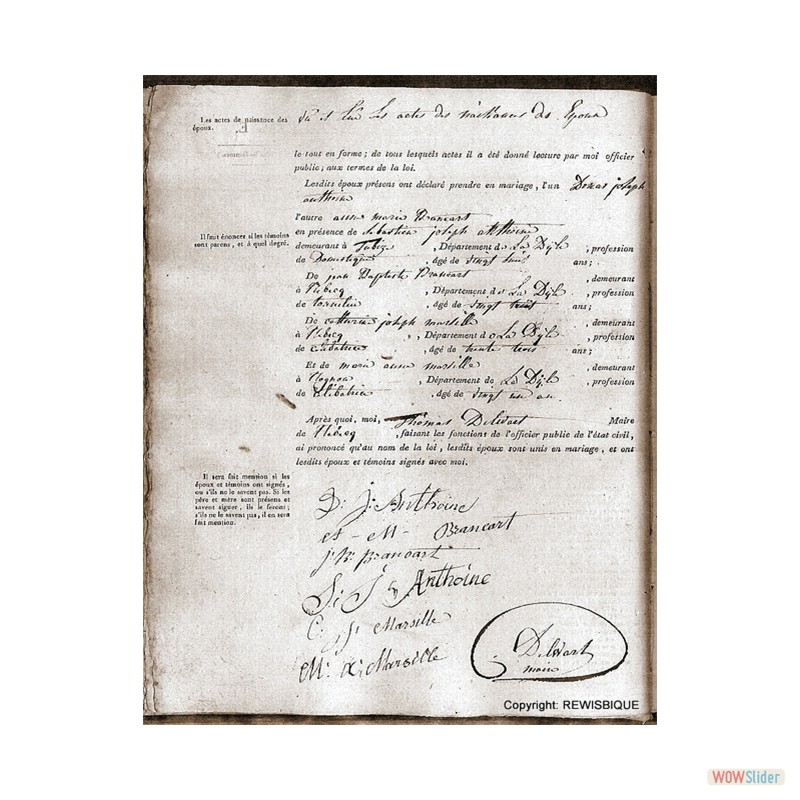 Les actes de naissance des
époux.
les actes des naissances des Epoux
le tout en forme; de tous lesquels actes il a été donné lecture par moi officier
public, aux termes de la loi.
Lesdits époux présens ont déclaré prendre en mariage, l'un joseph
anthoine
l'autre anne marie Brancart
Il faut énoncer si les témoins
sont parens, et à quel degré.
en présence de sebastien joseph anthoine
demeurant à Tubize , Département de La Dyle , profession
de Domestique , âgé de vingt huit ans;
De jean Baptiste Brancart , demeurant
à , Département de La Dyle , profession
de , âgé de vingt ans;
De catherine joseph marsille , demeurant
à , Département de La Dyle , profession
de , âgé de trente trois ans;
Et de marie anne marsille , demeurant
à , Département de La Dyle , profession
de , âgé de vingt un an.
Après quoi, moi, Thomas Delwart Maire
de , faisant les fonctions de l'officier public de l'état civil,
ai prononcé qu'au nom de la loi, lesdits époux sont unis en mariage, et ont
lesdits époux et témoins signés avec moi.
Il sera fait mention si les
époux et témoins ont signés,
ou s'ils ne le savent pas. Si les
père et mère sont présens et
savent signer, ils le feront;
s'ils ne le savent pas, il en sera
fait mention.
D: J: Anthoine
A - M - Brancart
j: B: Brancart
S: J: Anthoine
C: j: Marsille
M: A: Marsille
Delwart
maire
Copyright: REWISBIQUE
WOWSlider